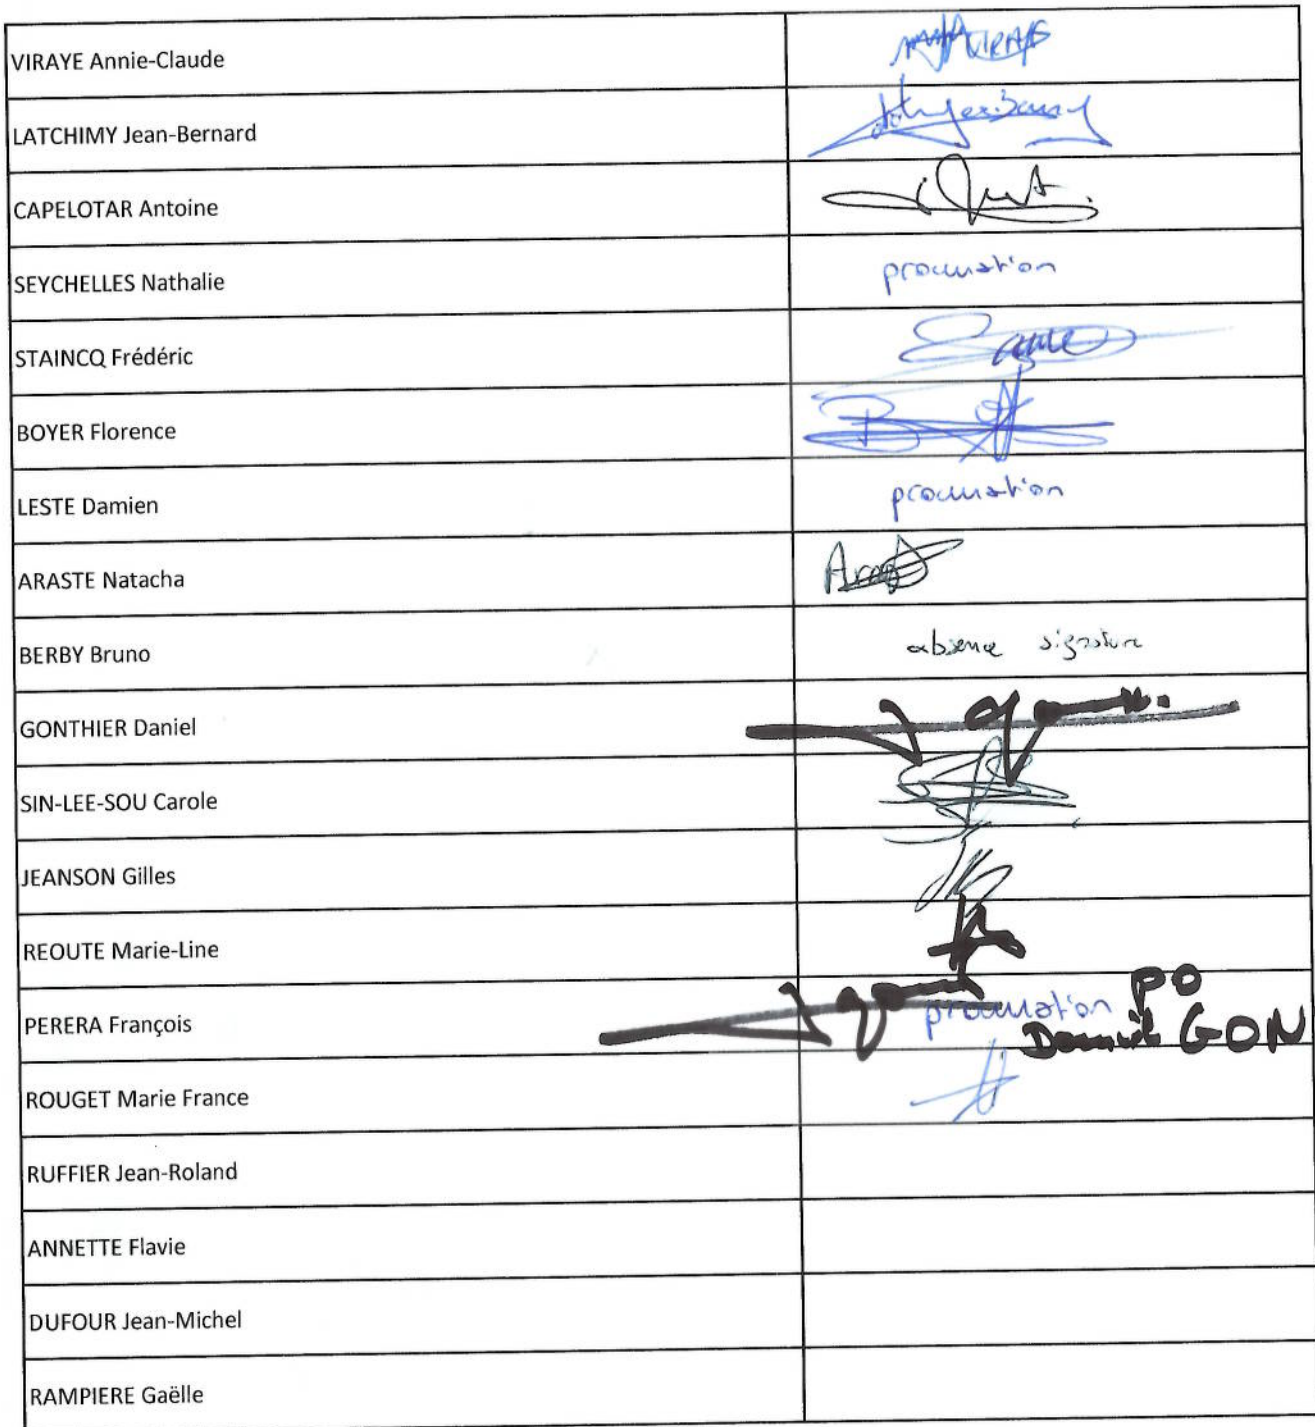 VIRAYE Annie-Claude
VIRAYE
LATCHIMY Jean-Bernard
CAPELOTAR Antoine
SEYCHELLES Nathalie procuration
STAINCQ Frédéric
BOYER Florence
LESTE Damien procuration
ARASTE Natacha
BERBY Bruno absence signature
GONTHIER Daniel
SIN-LEE-SOU Carole
JEANSON Gilles
REOUTE Marie-Line
PERERA François procuration PO
GON
ROUGET Marie France
RUFFIER Jean-Roland
ANNETTE Flavie
DUFOUR Jean-Michel
RAMPIERE Gaëlle